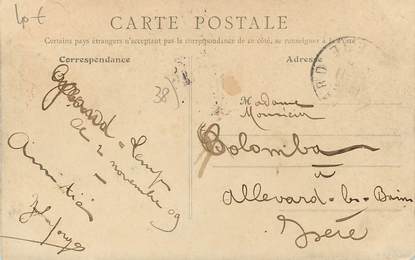 CARTE POSTALE
Certains pays étrangers n'acceptant pas la correspondance de ce côté, se renseigner à la Poste
Correspondance
Adresse
38
le 2 novembre 09
Amitié
Madame
Monsieur
Colomba
à
Allevard-les-Bains
Isère